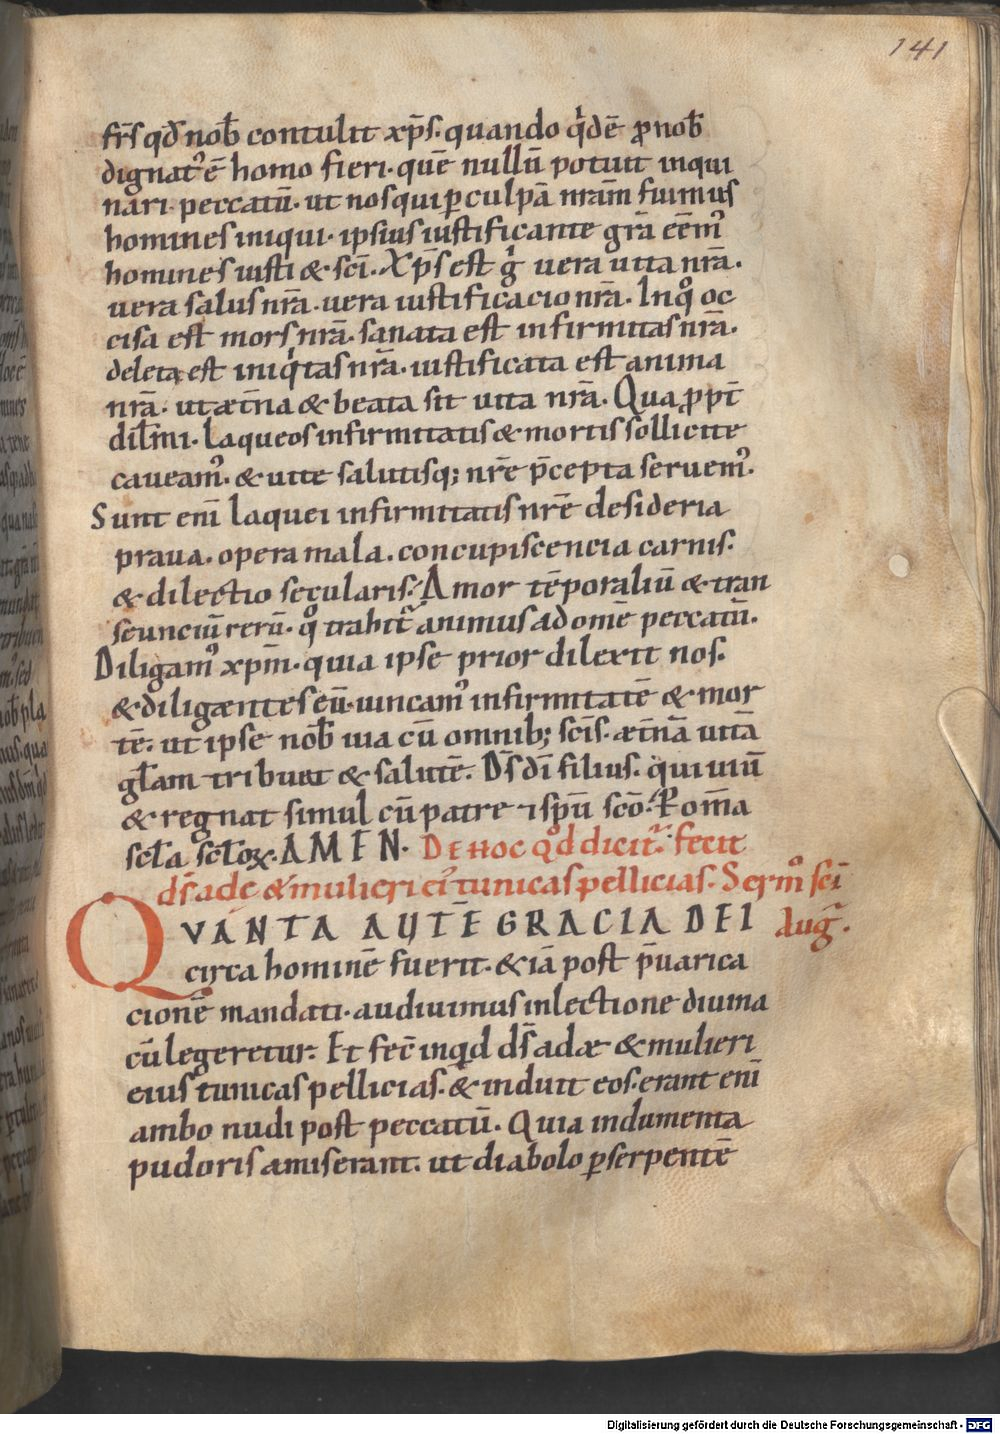 141
fr̄s qđ nob̄ contulit xp̄s. quando q̇dē ꝓ nob̄
dignat᷒ ē homo fieri. quē nullū potuit inqui
nari peccatū. ut nos qui ꝑ culpā nrām fuimus
homines iniqui. ipsius iustificante grā eēm᷒
homines iusti & sc̄i. Xp̄s est g̊ uera uita nrā.
uera salus nrā. uera iustificacio nrā. In qͦ oc
cisa est mors nrā. sanata est infirmitas nrā.
deleta est iniq̇tas nrā. iustificata est anima
nrā. ut æt̄na & beata sit uita nrā. Qua ꝓpt̄
dil̄mi. laqueos infirmitatis & mortis sollicite
caueam᷒. & uite salutisq; nrē p̄cepta seruem᷒.
Sunt enī laquei infirmitatis nrē desideria
praua. opera mala. concupiscencia carnis.
& dilectio secularis. Amor tēporaliū & tran
seunciū rerū. qͦ trahit᷒ animus ad omē peccatū.
Diligam᷒ xp̄m. quia ipse prior dilexit nos.
& diligentes eū uincam᷒ infirmitatē & mor
tē. ut ipse nob̄ uia cū omnib; sc̄is. æt̄nā uitā
gl̄am tribuat & salutē. Dī s dī filius. qui uiū
& regnat simul cū patre ⁊ spū scō. P om̄a
scl̄a scl̄oꝝ. AMEN. DE HOC Qͦd dicit᷒. fecit
dn̄s adę & mulieri ei᷒ tunicas pellicias. Sermͦ sc̄i
QVANTA AUTĒ GRACIA DEI Aug᷒.
circa hominē fuerit. & iā post p̄uarica
cionē mandati. audiuimus in lectione diuina
cū legeretur. Et fec̄ inqͥd dn̄s adæ & mulieri
eius tunicas pellicias. & induit eos. erant enī
ambo nudi post peccatū. Quia indumenta
pudoris amiserant. ut diabolo ꝑ serpentē
Digitalisierung gefördert durch die Deutsche Forschungsgemeinschaft - DFG